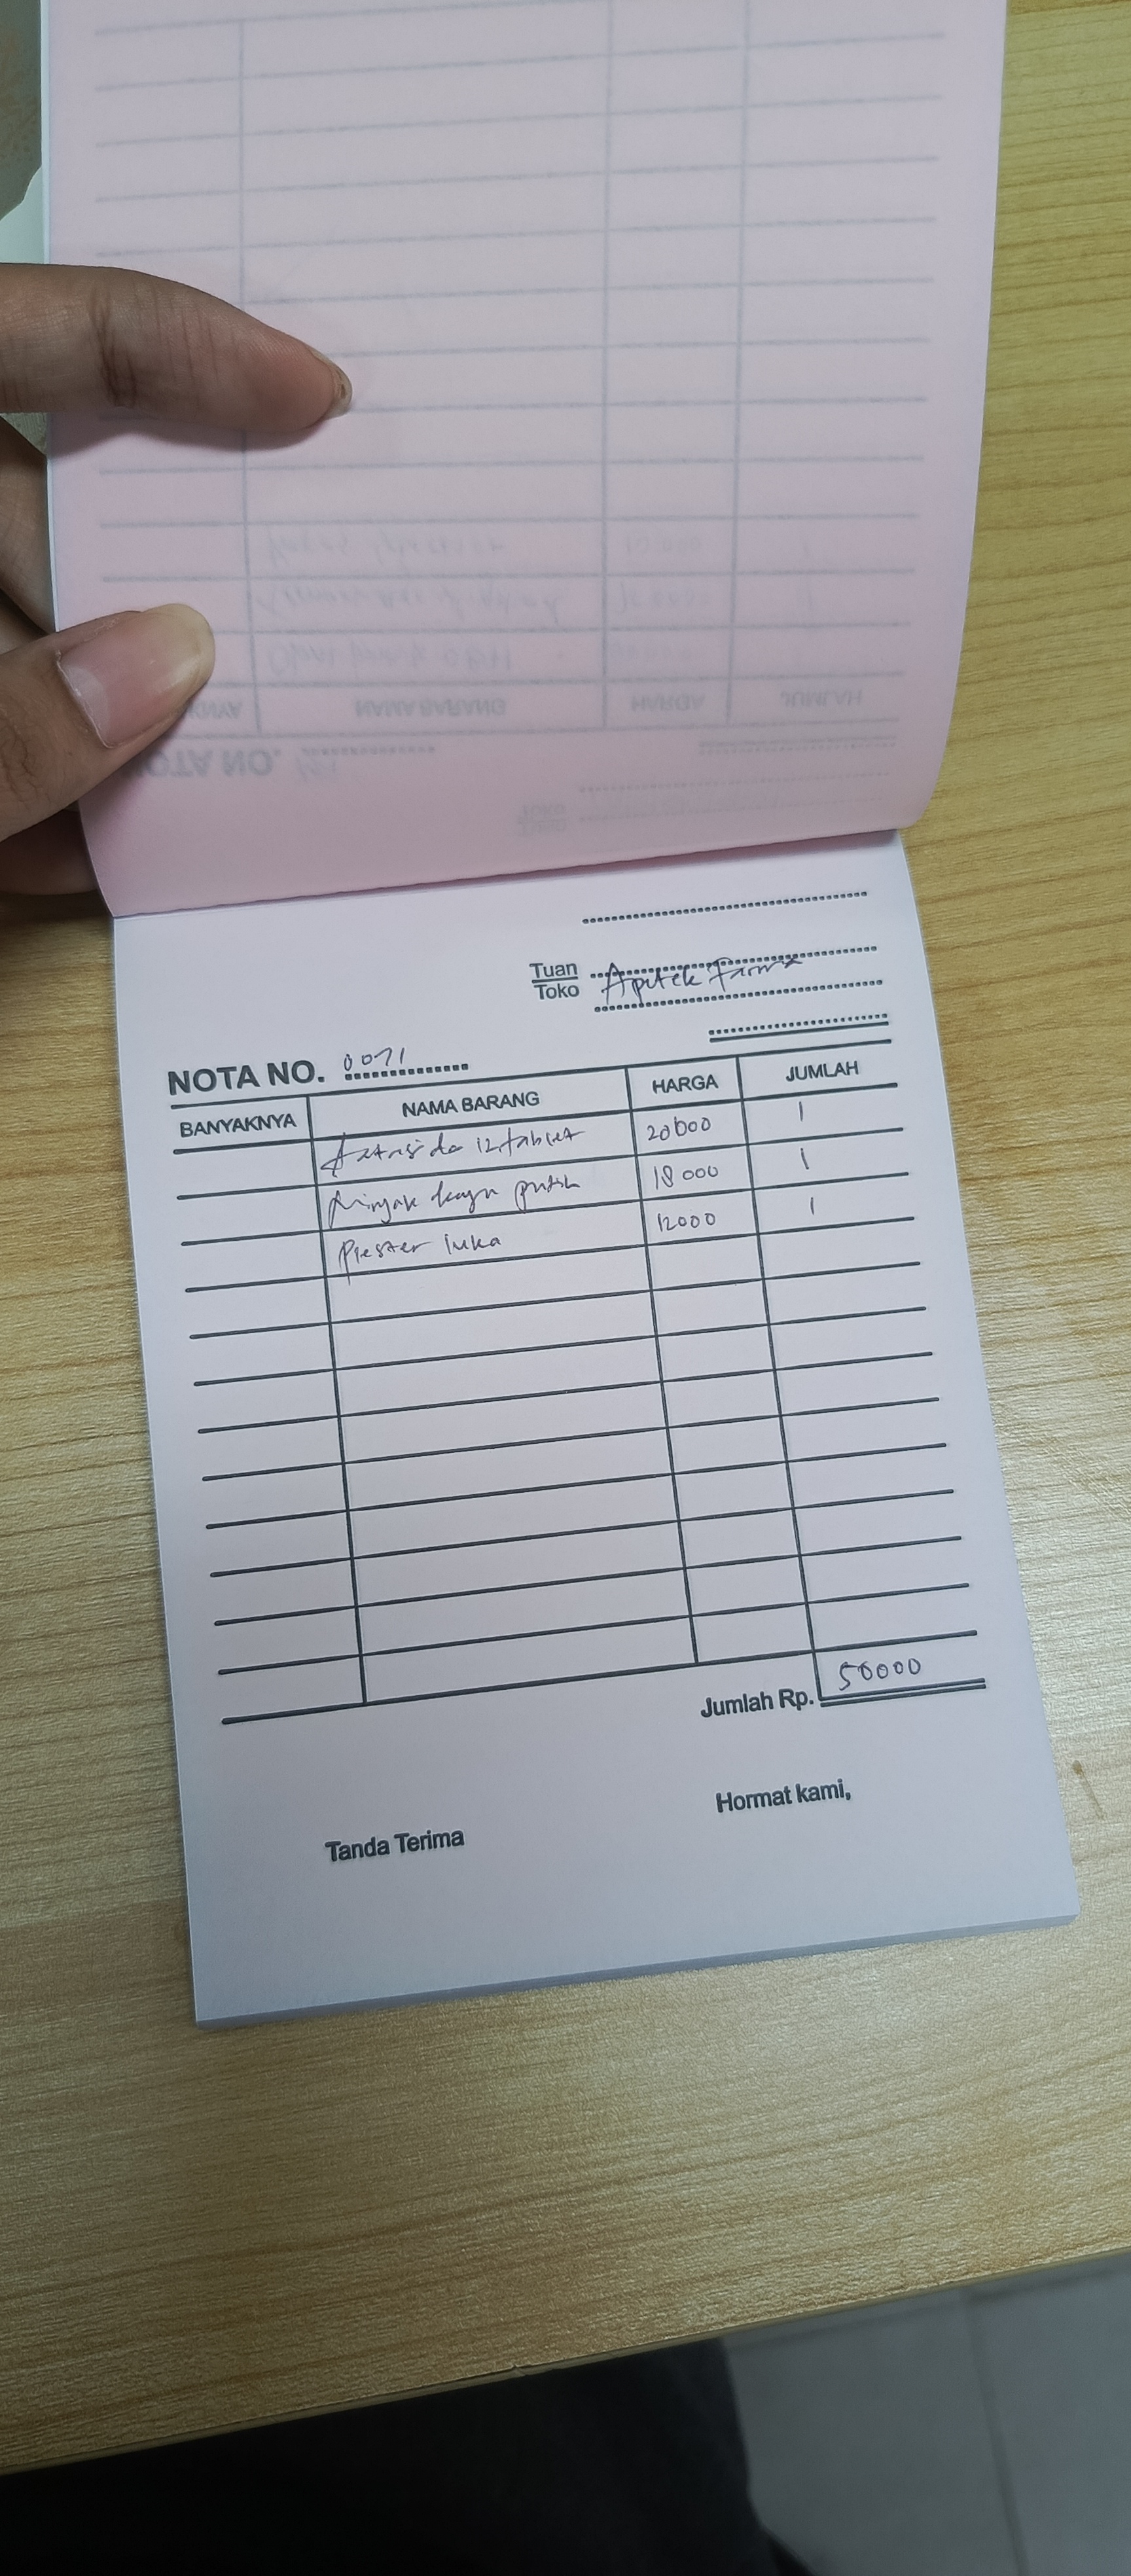 Tuan
Toko Apotek Farma
NOTA NO. 0071
BANYAKNYA NAMA BARANG HARGA JUMLAH
12 tablet 20000 1
Minyak kayu putih 18 000 1
Plester luka 12000 1
Jumlah Rp. 50000
Tanda Terima Hormat kami,